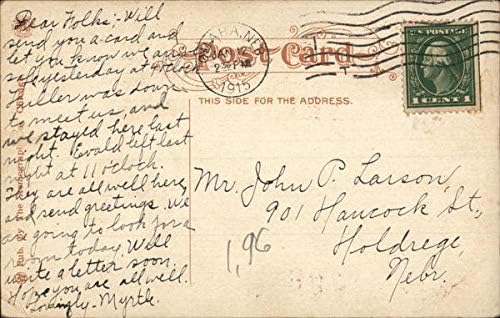 Dear Folks:- Will
send you a card and
let you know we arrived
safe yesterday at
was down
to meet us, and
we stayed here last
night. Evald left last
night at 11 o'clock.
They are all well here,
and send greetings. We
are going to look for a
room today. Will
write a letter soon.
Hope you are all well.
Lovingly - Myrtle.
Post Card
1915
THIS SIDE FOR THE ADDRESS.
U.S. POSTAGE
1 CENT 1
Mr. John P. Larson,
901 Hancock St.,
Holdrege,
Nebr.
1,96